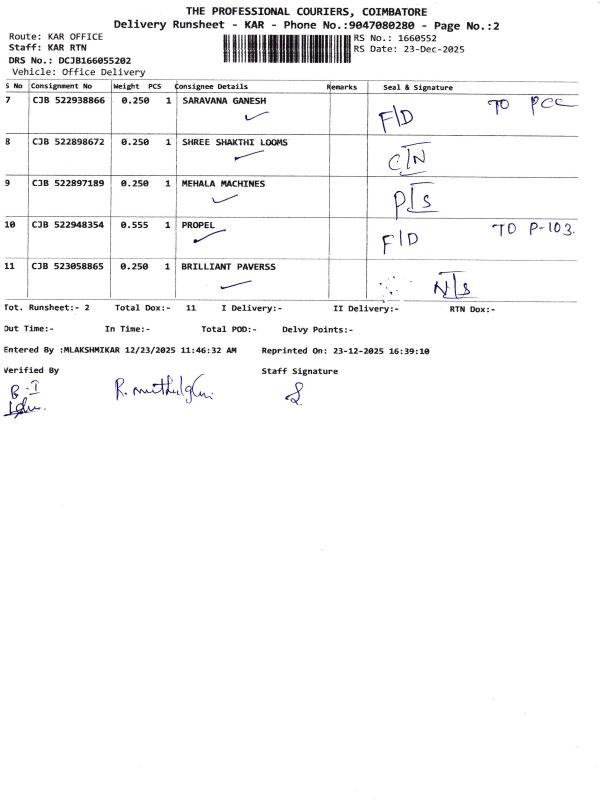 THE PROFESSIONAL COURIERS, COIMBATORE
Delivery Runsheet - KAR - Phone No.:9047080280 - Page No.:2
Route: KAR OFFICE RS No.: 1660552
Staff: KAR RTN RS Date: 23-Dec-2025
DRS No.: DCJB166055202
Vehicle: Office Delivery
S No Consignment No Weight PCS Consignee Details Remarks Seal & Signature
7 CJB 522938866 0.250 1 SARAVANA GANESH F|D TO PCC
8 CJB 522898672 0.250 1 SHREE SHAKTHI LOOMS C|N
9 CJB 522897189 0.250 1 MEHALA MACHINES P|S
10 CJB 522948354 0.555 1 PROPEL F|D TO P-103.
11 CJB 523058865 0.250 1 BRILLIANT PAVERSS N|S
Tot. Runsheet:- 2 Total Dox:- 11 I Delivery:- II Delivery:- RTN Dox:-
Out Time:- In Time:- Total POD:- Delvy Points:-
Entered By :MLAKSHMIKAR 12/23/2025 11:46:32 AM Reprinted On: 23-12-2025 16:39:10
Verified By Staff Signature
B-I